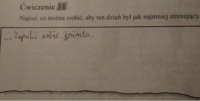 Ćwiczenie 33
Napisz, co można zrobić, aby ten dzień był jak najmniej stresujący.
... Zapalić sobie jointa.